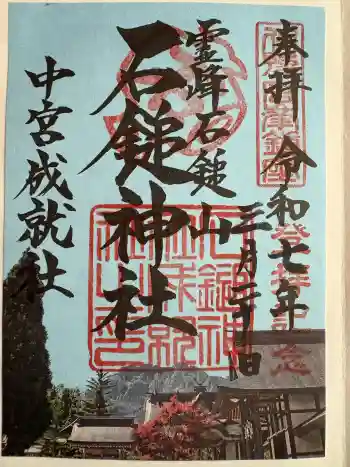 奉拝
令和七年
三月二十日
霊峰石鎚山
石鎚神社
中宮成就社
登拝記念